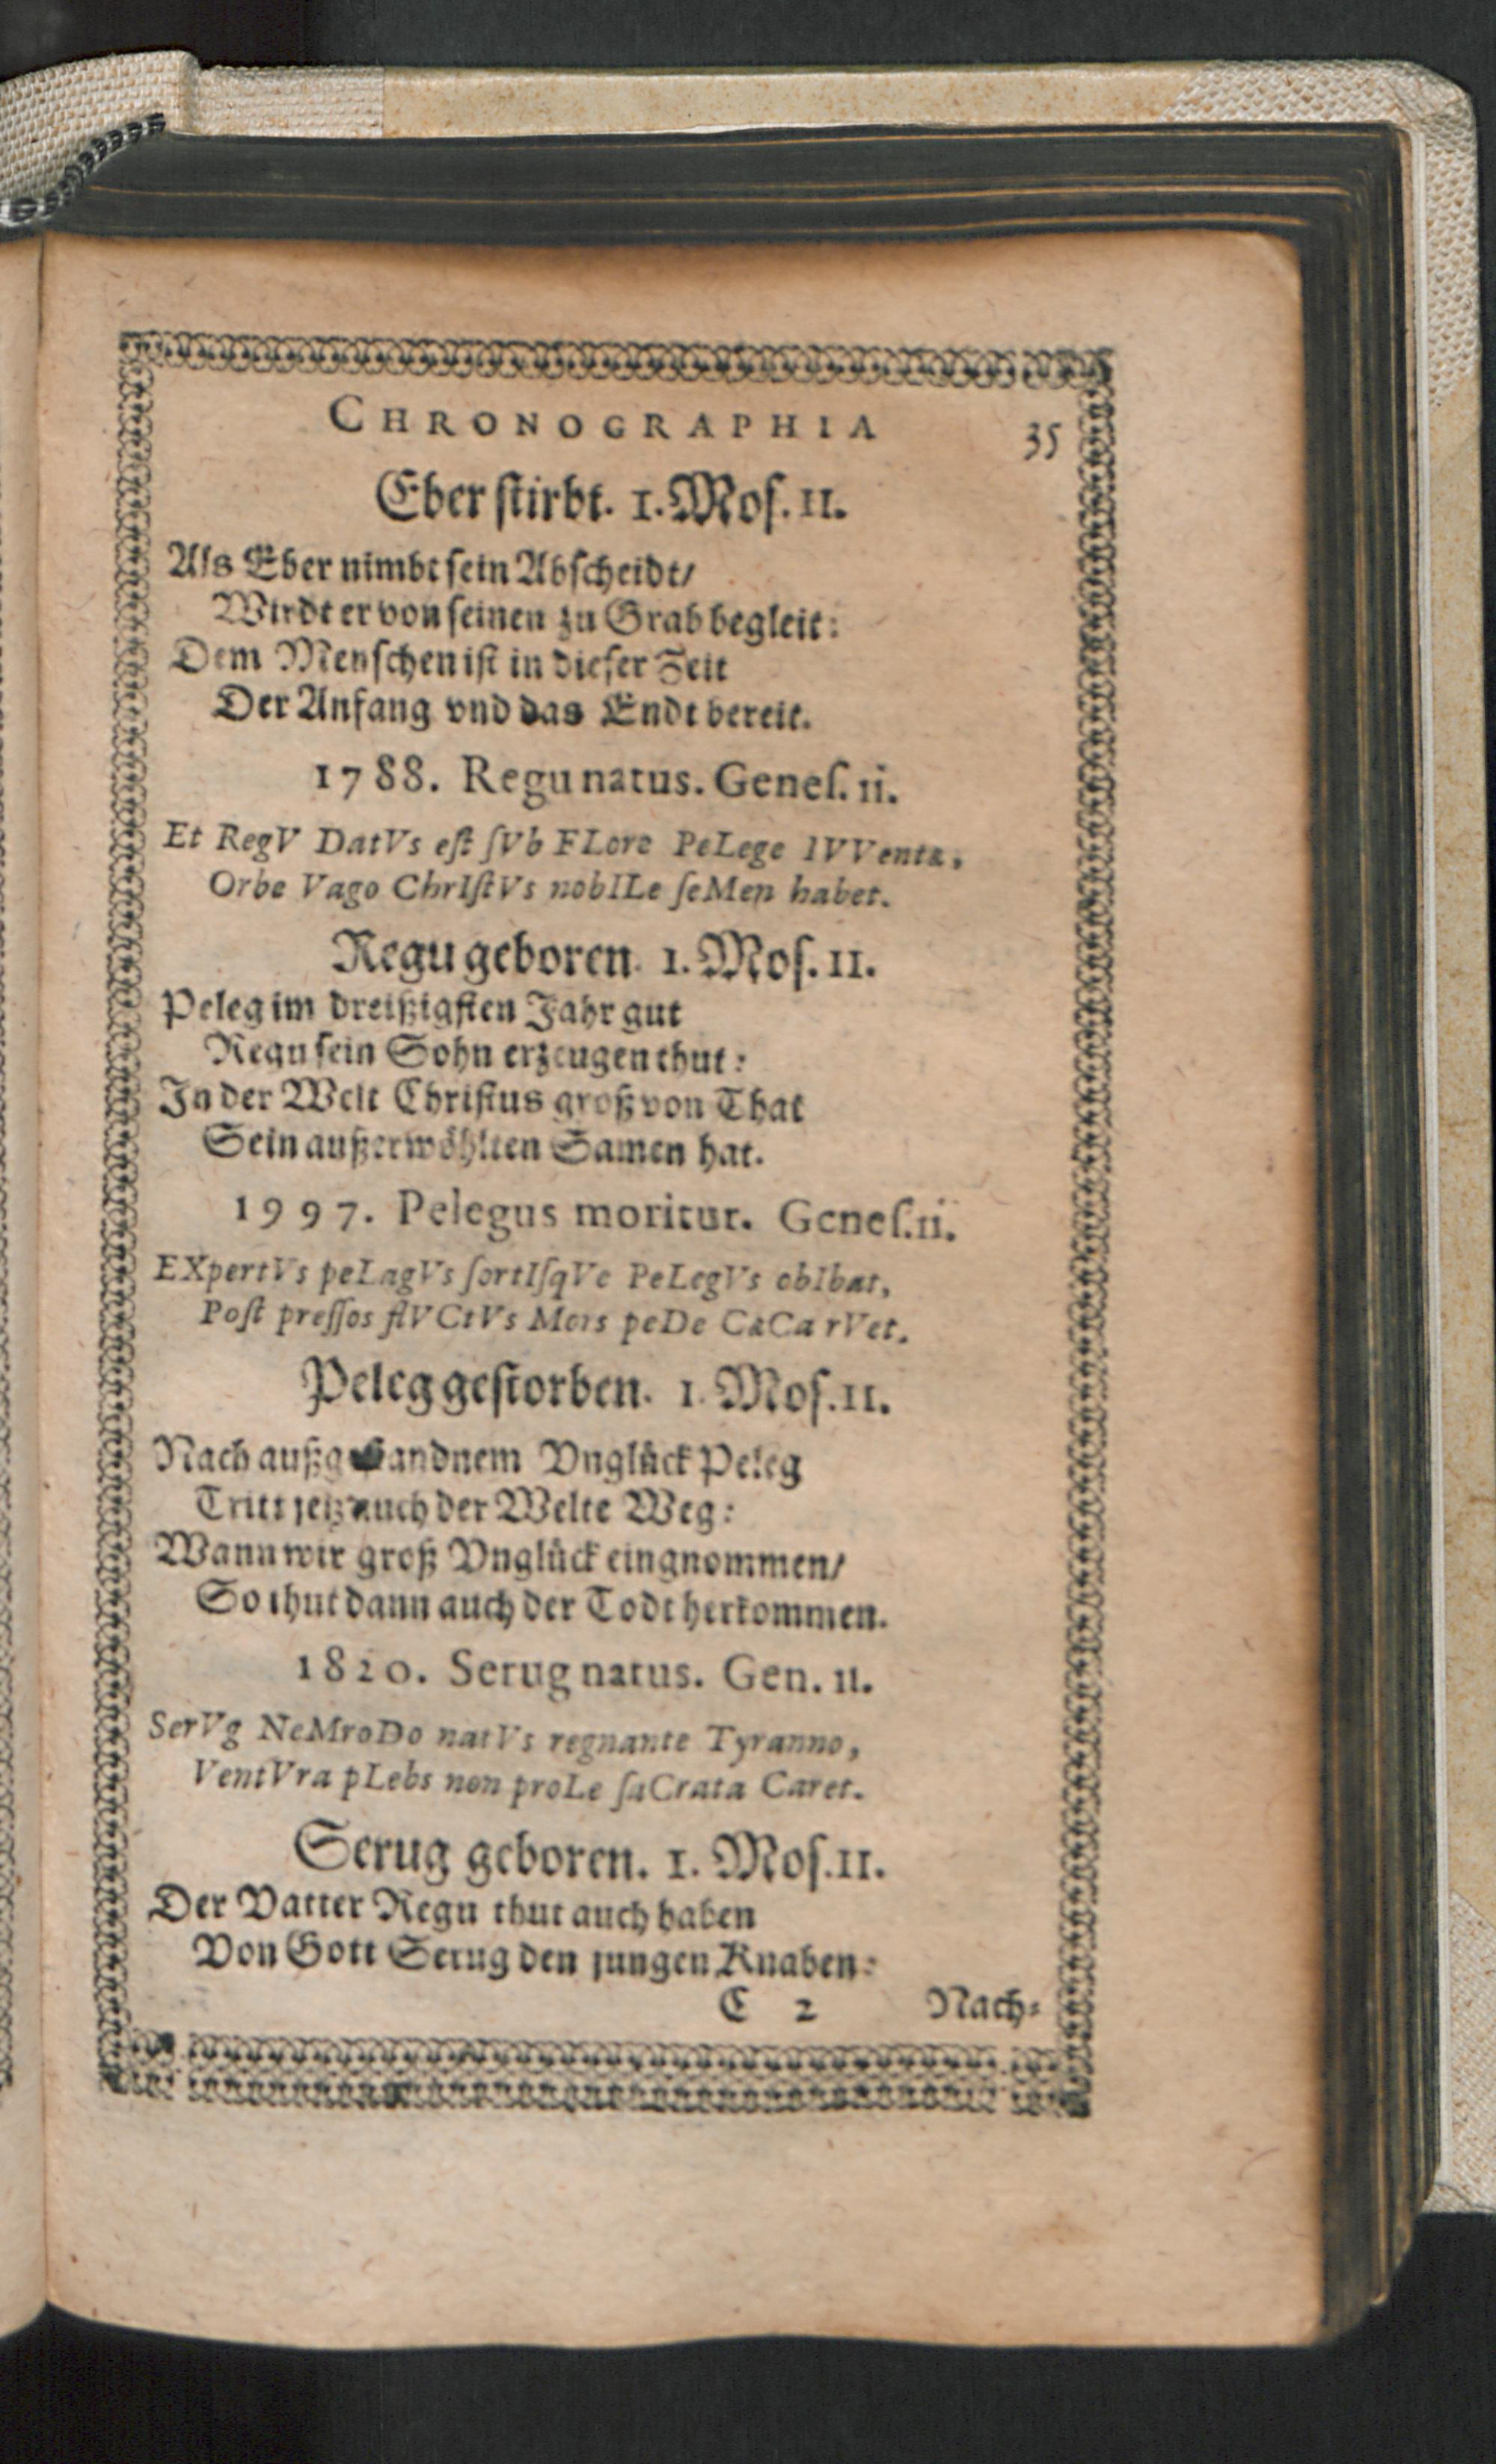 CHRONOGRAPHIA 35
Eber ſtirbt. 1. Moſ. 11.
Als Eber nimbt ſein Abſcheidt/
Wirdt er von ſeinen zu Grab begleit:
Dem Menſchen iſt in dieſer Zeit
Der Anfang vnd das Endt bereit.
1788. Regu natus. Geneſ. ii.
Et RegV DatVs eſt ſVb FLore PeLege IVVentæ,
Orbe Vago ChrIſtVs nobILe ſeMen habet.
Regu geboren. 1. Moſ. 11.
Peleg im dreiſzigſten Jahr gut
Regu ſein Sohn erzeugen thut:
In der Welt Chriſtus groß von That
Sein außerwöhlten Samen hat.
1997. Pelegus moritur. Geneſ. ii.
EXpertVs peLagVs ſortIſqVe PeLegVs obIbat,
Poſt preſſos flVCtVs Mors peDe CæCa rVet.
Peleg geſtorben. 1. Moſ. 11.
Nach Vnglück Peleg
Tritt jetz auch der Welte Weg:
Wann wir groß Vnglück eingnommen/
So thut dann auch der Todt herkommen.
1820. Serug natus. Gen. 11.
SerVg NeMroDo natVs regnante Tyranno,
VentVra pLebs non proLe ſaCrata Caret.
Serug geboren. 1. Moſ. 11.
Der Vatter Regu thut auch haben
Von Gott Serug den jungen Knaben:
C 2 Nach⸗